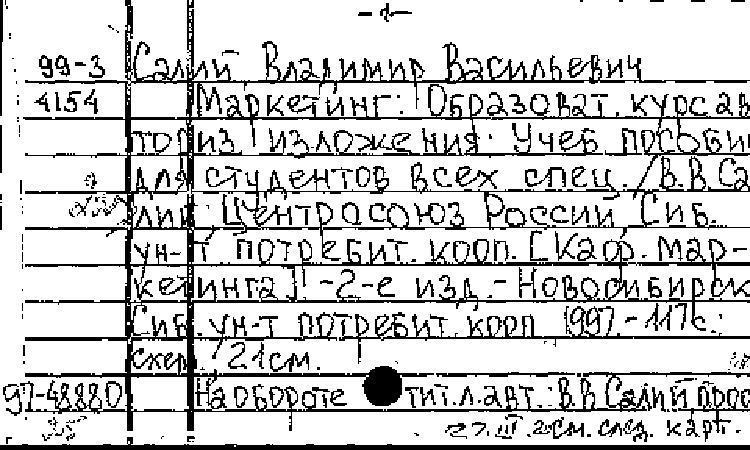 -1-
99-3 Салий Владимир Васильевич
4154 Маркетинг: Образоват. курс ав
ториз. изложения: Учеб. пособи
для студентов всех спец. /В.В Са
лий Центросоюз России, Сиб.
ун-т потребит. кооп. [Каф. мар-
кетинга] -2-е изд.- Новосибирск
Сиб. ун-т потребит. кооп 1997.-117с.:
схем. 21см.
97-48880 На обороте тит.л.авт.: В.В Салий проф
см. след. карт.